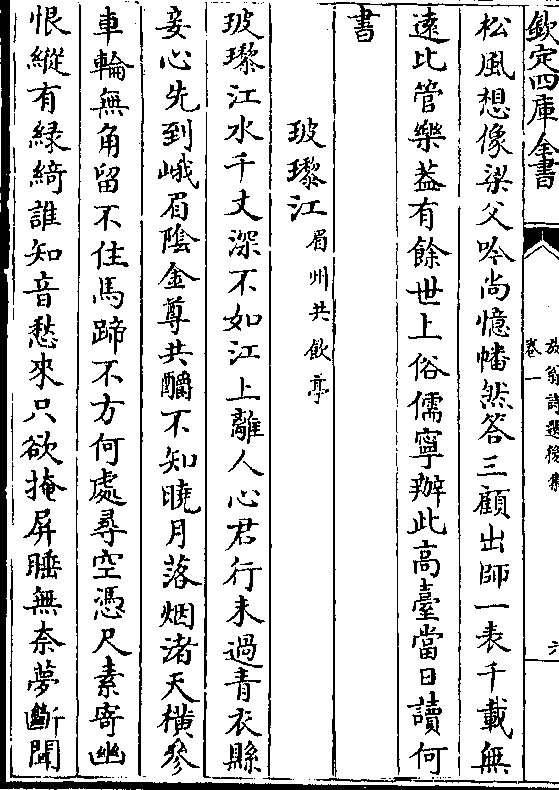 欽定四庫全書
放翁詩選後集
卷一
六
松風想像梁父吟尚憶幡然答三顧出師一表千載無
遠比管樂葢有餘世上俗儒寧辦此高臺當日讀何
書
玻瓈江眉州共飲亭
玻瓈江水千丈深不如江上離人心君行未過青衣縣
妾心先到峨眉陰金尊共釂不知曉月落烟渚天橫參
車輪無角留不住馬蹄不方何處尋空憑尺素寄幽
恨縱有緑綺誰知音愁來只欲掩屏睡無奈夢斷聞